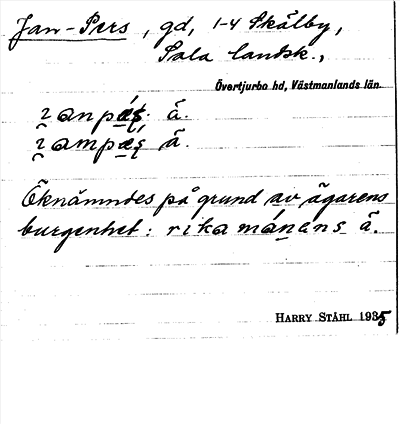 Jan-Pers, gd, 1-4 Skälby,
Sala landsk.,
Övertjurbo hd, Västmanlands län
ä.
ä.
Öknämndes på grund av ägarens
burgenhet: rika mánens ä.
HARRY STÅHL 1935